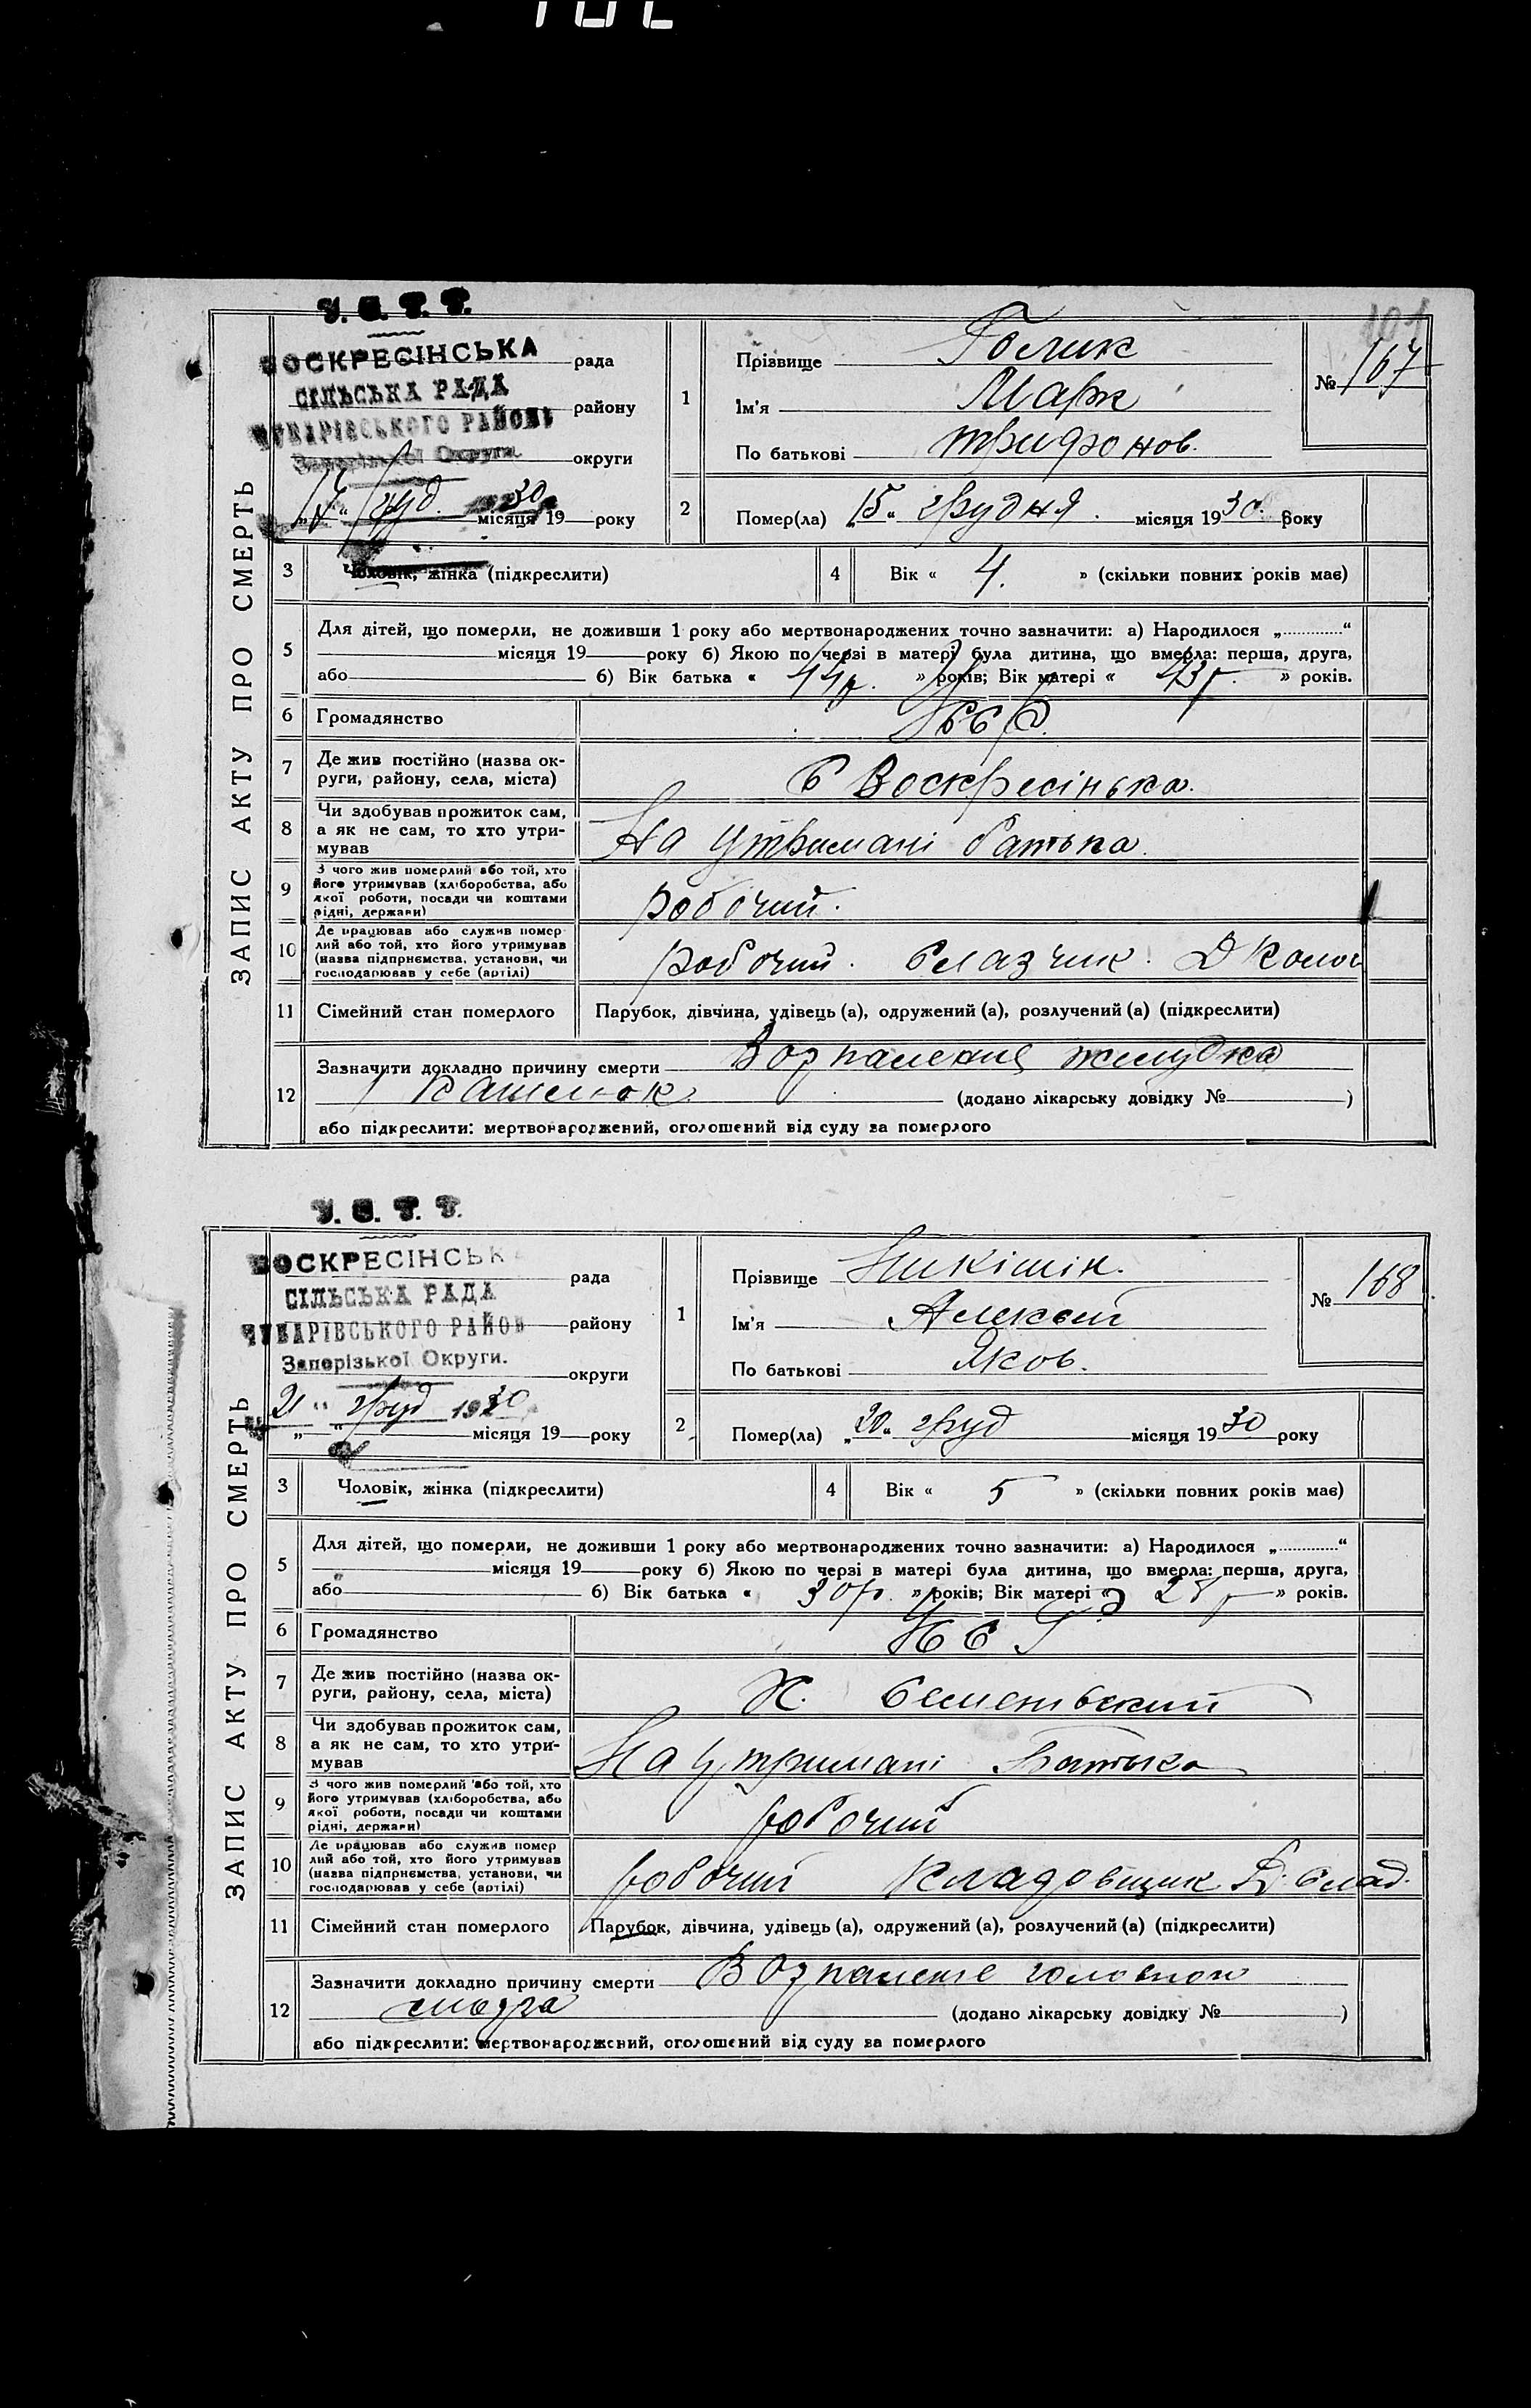 ЗАПИС АКТУ ПРО СМЕРТЬ
У. С. Р. Р.
ВОСКРЕСІНСЬКА рада
СІЛЬСЬКА РАДА
ЧУБАРІВСЬКОГО РАЙОНУ району
Запорізької Округи округи
„17“ груд. 1930 місяця 19 року
1 Прізвище Голик
Ім'я Марк
По батькові Трифонов.
№ 167
101
2 Помер(ла) „15“ грудня. місяця 1930. року
3 Чоловік, жінка (підкреслити)
4 Вік « 4. » (скільки повних років має)
5 Для дітей, що померли, не доживши 1 року або мертвонароджених точно зазначити: а) Народилося „............“
місяця 19 року б) Якою по черзі в матері була дитина, що вмерла: перша, друга,
або 6) Вік батька « 44р. » років; Вік матері « 43р. » років.
6 Громадянство
7 Де жив постійно (назва округи, району, села, міста) С Воскресінька.
8 Чи здобував прожиток сам, а як не сам, то хто утримував На утримані батька.
9 З чого жив померлий або той, хто його утримував (хліборобства, або якої роботи, посади чи коштами рідні, держави) робочий.
10 Де працював або служив помер лий або той, хто його утримував (назва підприємства, установи, чи господарював у себе (артілі) робочий.
11 Сімейний стан померлого Парубок, дівчина, удівець (а), одружений (а), розлучений (а) (підкреслити)
12 Зазначити докладно причину смерти Возпаление желудка
(додано лікарську довідку № )
або підкреслити: мертвонароджений, оголошений від суду за померлого
ЗАПИС АКТУ ПРО СМЕРТЬ
У. С. Р. Р.
ВОСКРЕСІНСЬК рада
СІЛЬСЬКА РАДА
ЧУБАРІВСЬКОГО РАЙОН району
Запорізької Округи. округи
21 “ груд 1930
„ “ місяця 19 року
1 Прізвище Никішін.
Ім'я Алексей
По батькові Яков.
№ 168
2 Помер(ла) „20“ груд місяця 1930 року
3 Чоловік, жінка (підкреслити)
4 Вік « 5 » (скільки повних років має)
5 Для дітей, що померли, не доживши 1 року або мертвонароджених точно зазначити: а) Народилося „............“
місяця 19 року б) Якою по черзі в матері була дитина, що вмерла: перша, друга,
або 6) Вік батька « 30р. » років; Вік матері « » років.
6 Громадянство
7 Де жив постійно (назва округи, району, села, міста) Х.
8 Чи здобував прожиток сам, а як не сам, то хто утримував На утримані Батька
9 З чого жив померлий або той, хто його утримував (хліборобства, або якої роботи, посади чи коштами рідні, держави) робочий
10 Де працював або служив помер лий або той, хто його утримував (назва підприємства, установи, чи господарював у себе (артілі) робочий кладовщик
11 Сімейний стан померлого Парубок, дівчина, удівець (а), одружений (а), розлучений (а) (підкреслити)
12 Зазначити докладно причину смерти Возпаление головнои
(додано лікарську довідку № )
або підкреслити: мертвонароджений, оголошений від суду за померлого